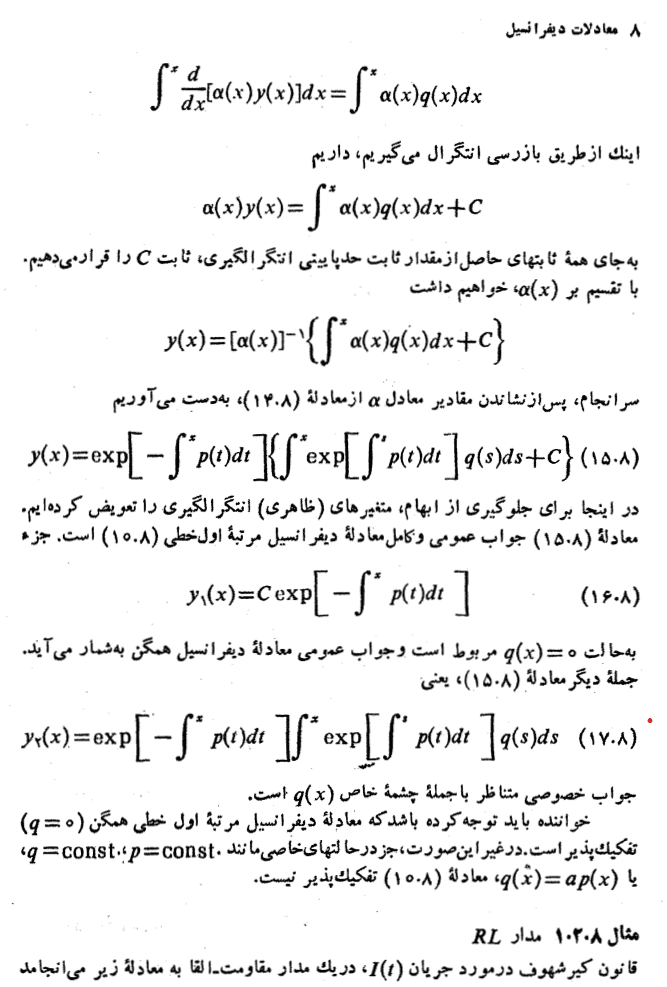 ۸ معادلات دیفرانسیل
∫^x d/dx[α(x)y(x)]dx=∫^x α(x)q(x)dx
اینك از طریق بازرسی انتگرال می‌گیریم، داریم
α(x)y(x)=∫^x α(x)q(x)dx+C
به‌جای همهٔ ثابتهای حاصل از مقدار ثابت حد پایینی انتگرالگیری، ثابت C را قرار می‌دهیم.
با تقسیم بر α(x)، خواهیم داشت
y(x)=[α(x)]^{-۱}{∫^x α(x)q(x)dx+C}
سرانجام، پس از نشاندن مقادیر معادل α از معادلهٔ (۱۴.۸)، به‌دست می‌آوریم
y(x)=exp[−∫^x p(t)dt]{∫^x exp[∫^s p(t)dt] q(s)ds+C} (۱۵.۸)
در اینجا برای جلوگیری از ابهام، متغیرهای (ظاهری) انتگرالگیری را تعویض کرده‌ایم.
معادلهٔ (۱۵.۸) جواب عمومی و کامل معادلهٔ دیفرانسیل مرتبهٔ اول خطی (۱۰.۸) است. جزء
y₁(x)=C exp[−∫^x p(t)dt] (۱۶.۸)
به‌حالت q(x)=۰ مربوط است و جواب عمومی معادلهٔ دیفرانسیل همگن به‌شمار می‌آید.
جملهٔ دیگر معادلهٔ (۱۵.۸)، یعنی
y₂(x)=exp[−∫^x p(t)dt]∫^x exp[∫^s p(t)dt]q(s)ds (۱۷.۸)
جواب خصوصی متناظر با جملهٔ چشمهٔ خاص q(x) است.
خواننده باید توجه کرده باشد که معادلهٔ دیفرانسیل مرتبهٔ اول خطی همگن (q=۰)
تفکیك‌پذیر است. در غیر این صورت، جز در حالتهای خاصی مانند p=const.، q=const.،
یا q(x)=ap(x)، معادلهٔ (۱۰.۸) تفکیك‌پذیر نیست.
مثال ۱.۲.۸ مدار RL
قانون کیرشهوف در مورد جریان I(t)، در یك مدار مقاومت-القا به معادلهٔ زیر می‌انجامد